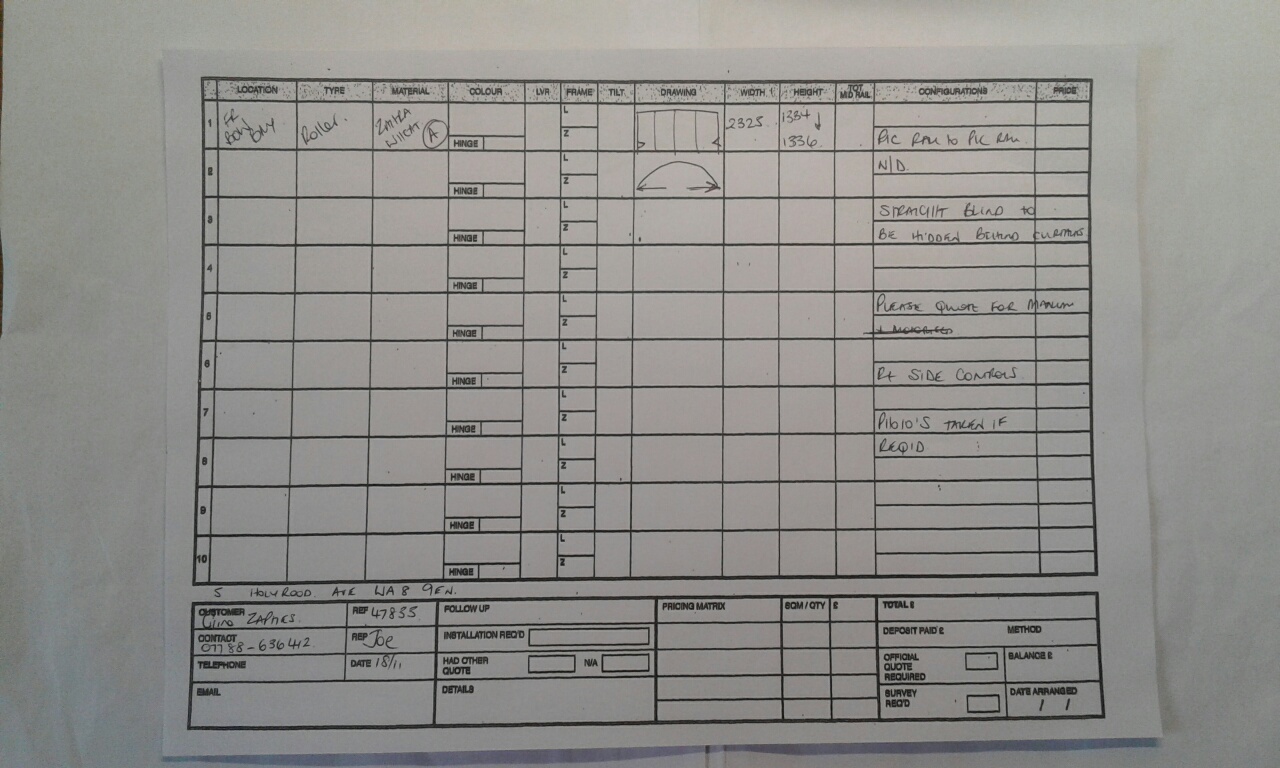 LOCATION TYPE MATERIAL COLOUR LVR FRAME TILT DRAWING WIDTH HEIGHT TOT MID RAIL CONFIGURATIONS PRICE
1 FR BOW BAY Roller. WHEAT A HINGE L Z 2325 1334 1336 PIC RAIL to PIC RAIL
2 HINGE L Z N/D.
3 HINGE L Z STRAIGHT BLIND to
BE HIDDEN BEHIND CURTAINS
4 HINGE L Z
5 HINGE L Z PLEASE QUOTE FOR MANUAL
6 HINGE L Z Rt SIDE CONTROLS
7 HINGE L Z TAKEN IF
8 HINGE L Z REQ'D
9 HINGE L Z
10 HINGE L Z
5 HOLYROOD AVE WA8 9EN.
CUSTOMER REF 47855 FOLLOW UP PRICING MATRIX SQM / QTY £ TOTAL £
CONTACT REP Joe INSTALLATION REQ'D DEPOSIT PAID £ METHOD
07788-636412
TELEPHONE DATE 18/11 HAD OTHER QUOTE N/A OFFICIAL QUOTE REQUIRED BALANCE £
EMAIL DETAILS SURVEY REQ'D DATE ARRANGED / /